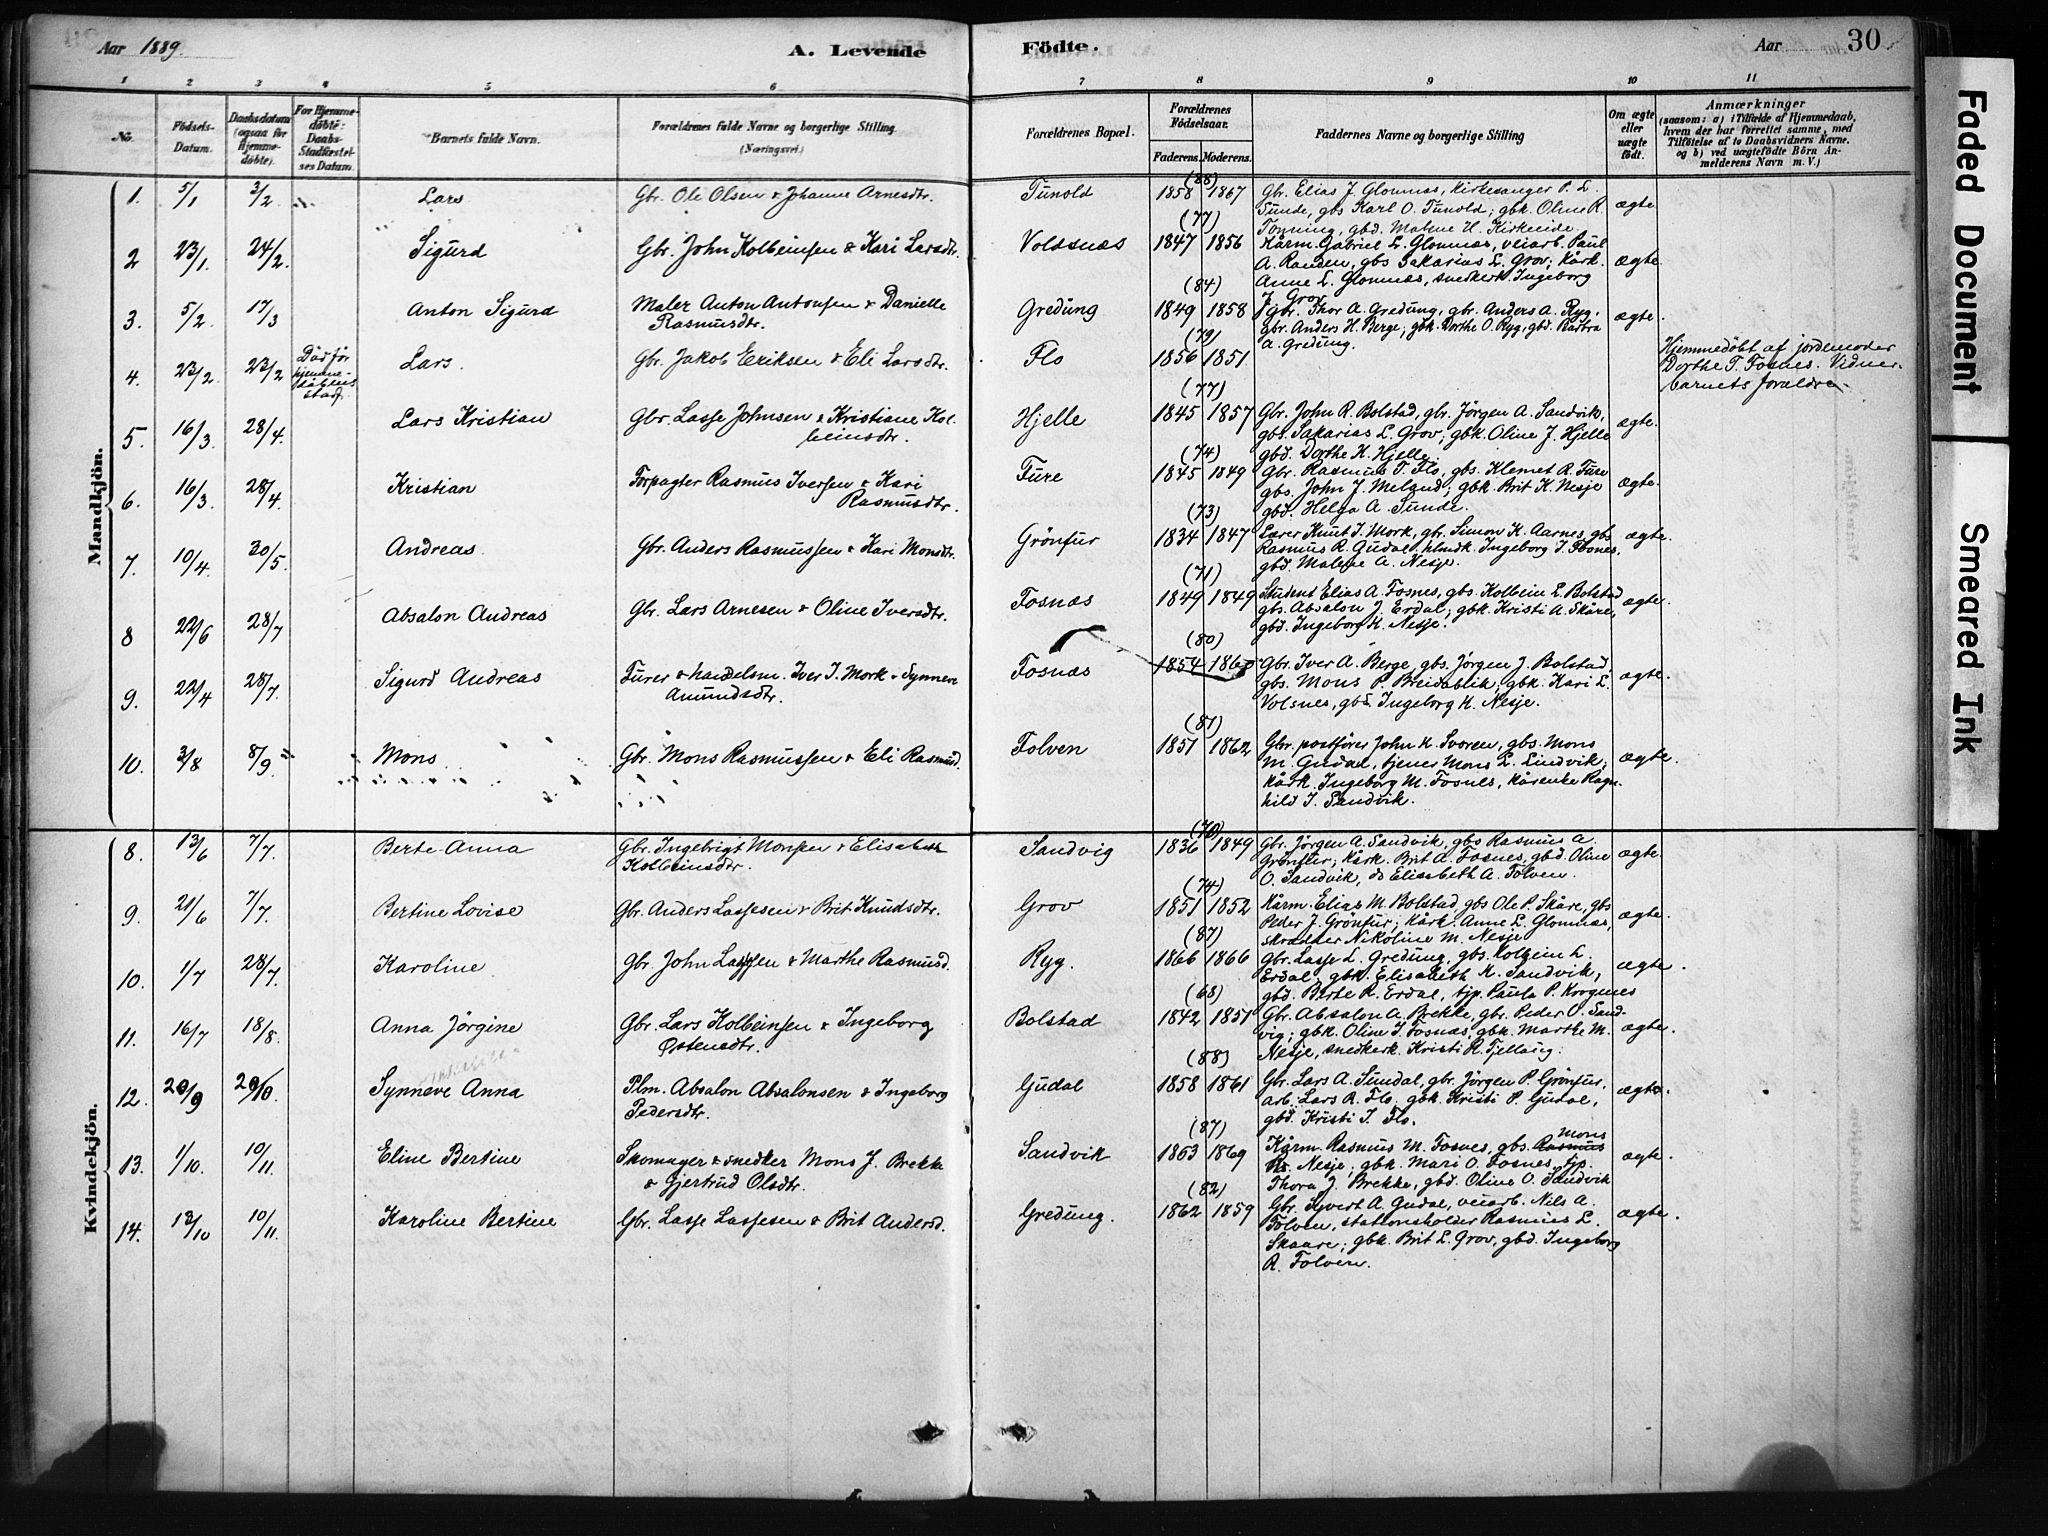 Aar 1889. A. Levende Födte. Aar 30
1 2 3 4 5 6 7 8 9 10 11
No. Födsels-Datum. Daabsdatum (ogsaa för Hjemmedöbte). For Hjemmedöbte: Daabs-Stadfæstelses Datum. Barnets fulde Navn. Forældrenes fulde Navne og borgerlige Stilling. (Næringsvei.) Forældrenes Bopæl. Forældrenes Födselsaar. Faderens. Moderens. Faddernes Navne og borgerlige Stilling Om ægte eller uægte födt. Anmærkninger (saasom: a) i Tilfælde af Hjemmedaab, hvem der har forrettet samme, med Tilföielse af to Daabsvidners Navne, og b) ved uægtefödte Börn Anmelderens Navn m. V.)
Mandkjön.
1. 5/1 3/2 Lars Gbr. Ole Olsen & Johanne Arnesdtr. Tunold 1858 (88) 1867 Gbr. Elias J. Glomnæs, Kirkesanger P. L.
Sunde, gbs Karl O. Tunold; gbk. Oline R.
Tonning, gbd. Malene H. Kirkeide ægte
2 23/1. 24/2. Sigurd Gbr. John Kolbeinsen & Kari Larsdtr. Volssnæs 1847 (77) 1856 Kårm. Gabriel L. Glomnæs, veiarb. Paul
A. Randen, gbs Sakarias L. Grov; kårk.
Anne L. Glomnæs, snedkerk Ingeborg
J. Grov ægte
3. 5/2. 17/3 Anton Sigurd Maler Anton Antonsen & Danielle
Rasmusdtr. Gredung 1849 (84) 1858 gbr. Thor A. Gredung, gbr. Anders A. Ryg,
gbr. Anders H. Berge; gbk. Dorthe O. Ryg, gbd. Barbra
A. Gredung. ægte.
4. 23/2. 23/2 Död för
hjemme-
döbens
stadf. Lars. Gbr. Jakob Eriksen & Eli Larsdtr. Flo 1856 (79) 1851 Hjemmedöbt af jordemoder
Dorthe T. Fosnes. Vidner
barnets forældre
5. 16/3. 28/4. Lars Kristian Gbr. Lasse Johnsen & Kristiane Kol-
beinsdtr. Hjelle 1845 (77) 1857 Gbr. John R. Bolstad, gbr. Jörgen A. Sandvik,
gbs. Sakarias L. Grov; gbk. Oline J. Hjelle
gbd. Dorthe K. Hjelle. ægte.
6. 16/3. 28/4 Kristian Forpagter Rasmus Iversen & Kari
Rasmusdtr. Fure 1845 (74) 1849 Gbr. Rasmus T. Flo, gbs. Klemet R. Fure
gbs. John J. Melgud; gbk. Brit K. Nesje
gbd. Helga A. Sunde. ægte.
7. 10/4. 30/5. Andreas. Gbr. Anders Rasmussen & Kari Monsdtr. Grönfur 1834 (73) 1847 Lærer Knut J. Mork, gbr. Simon K. Aarnes, gbs
Rasmus R. Gudal; Ingeborg J. Fosnes,
gbd. Malene A. Nesje. ægte.
8 22/6 28/7 Absalon Andreas Gbr. Lars Arnesen & Oline Iversdtr. Fosnæs 1849 (71) 1849 Student Elias A. Fosnes, gbs. Kolbein L. Bolstad
gbs. Absalon J. Erdal; gbk. Kristi A. Skåre,
gbd. Ingeborg K. Nesje. ægte.
9. 22/4 28/7. Sigurd Andreas Furer & handelsm. Iver J. Mork & Synnev
Amundsdtr. Fosnæs 1854 (80) 1860 Gbr. Iver A. Berge, gbs. Jörgen J. Bolstad,
gbs. Mons P. Breidablik; gbk. Kari L.
Volsnes, gbd. Ingeborg K. Nesje. ægte.
10. 3/8 8/9 Mons Gbr. Mons Rasmussen & Eli Rasmusd. Folven 1851 (81) 1862 Gbr. postförer John K. Svoren, gbs. Mons
M. Gudal, tjener Mons L. Lindvik;
kårk. Ingeborg M. Fosnes, kårenke Ragn-
hild J. Sandvik. ægte.
Kvindekjön.
8. 13/6 7/7. Berte Anna Gbr. Ingebrigt Monsen & Elisabeth
Kolbeinsdtr. Sandvig 1836 (70) 1849 Gbr. Jörgen A. Sandvik, gbs Rasmus A.
Grönfur; kårk. Brit A. Fosnes, gbd. Oline
O. Sandvik, do Elisabeth A. Folven. ægte.
9. 21/6 7/7. Bertine Lovise Gbr. Anders Lassesen & Brit Knudsdtr. Grov 1851 (74) 1852 Kårm. Elias M. Bolstad, gbs Ole P. Skåre, gbs
Peder J. Grönfur; kårk. Anne L. Glomnæs,
skrædder Nikoline M. Nesje ægte.
10. 1/7 28/7. Karoline Gbr. John Lassesen & Marthe Rasmusd. Ryg. 1866 (87) 1866 Gbr. Lasse L. Gredung, gbs. Kolbein L.
Erdal; gbk. Elisabeth K. Sandvik,
gbd. Berte R. Erdal, tjp. Paula P. Krognes ægte.
11. 16/7 18/8. Anna Jörgine Gbr. Lars Kolbeinsen & Ingeborg
Østensdtr. Bolstad 1842 (68) 1851 Gbr. Absalon A. Brekke, gbr. Peder O. Sand-
vig; gbk. Oline J. Fosnæs, gbk. Marthe M.
Nesje, snedkerk. Kristi R. Tjellaug. ægte.
12. 20/9 20/10. Synneve Anna Plm. Absalon Absalonsen & Ingeborg
Pedersdtr. Gudal 1858 (88) 1861 Gbr. Lars A. Sundal, gbr. Jörgen P. Grönfur,
arb. Lars R. Flo; gbk. Kristi P. Gudal,
gbd. Kristi J. Flo. ægte.
13. 1/10. 10/11. Eline Bertine Skomager & snedker Mons J. Brekke
& Gjertrud Olsdtr. Sandvik 1863 (87) 1869 Kårm. Rasmus M. Fosnes, gbs. Rasmus Mons
Rs. Nesje; gbk. Mari O. Fosnes, tjp.
Thora J. Brekke, gbd. Oline O. Sandvik ægte.
14. 13/10 10/11. Karoline Bertine Gbr. Lasse Lassesen & Brit Andersd. Gredung. 1862 (82) 1859 Gbr. Syvert A. Gudal, veiarb. Nils A.
Folven, stationsholder Rasmus L.
Skaare; gbk. Brit L. Grov, gbd. Ingeborg
R. Folven. ægte.
Faded Document
Smeared Ink